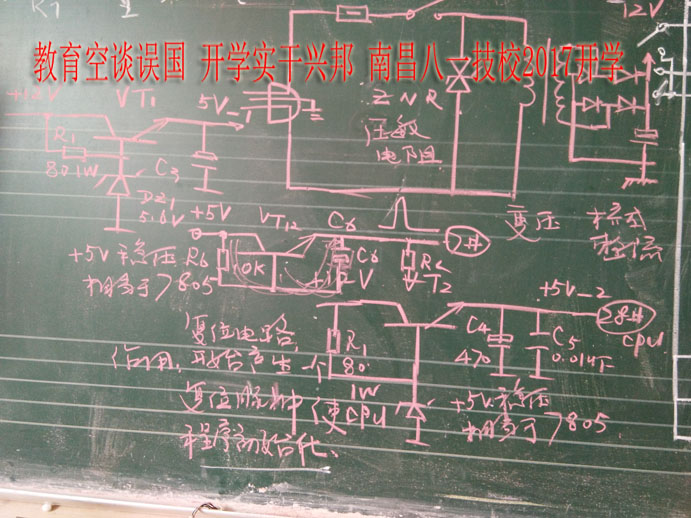 教育空谈误国 开学实干兴邦 南昌八一技校2017开学
12V
+12V
VT1
5V
ZNR
压敏
电阻
R1
80 1W
C3
DZ1
5.6V
+5V
VT12
C6
7井
变压
桥式
整流
+5V稳压
相当于7805
R6
10K
C6
R2
T2
+5V_2
28井
CPU
复位电路
作用,开始产生一个
R1
80
1W
C4
470
C5
0.01uF
复位脉冲使CPU
+5V稳压
相当于7805
程序初始化、